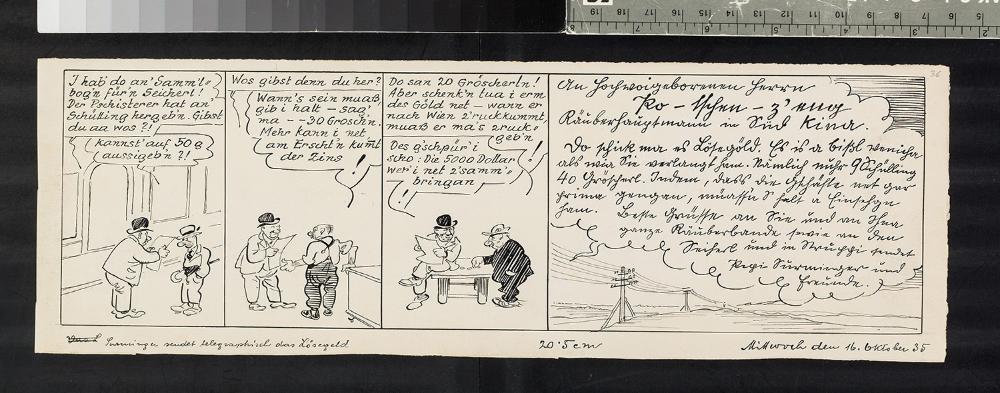 I hab' do an' Samml-
bog'n für'n Seicherl!
Der Pschisterer hat an'
Schülling hergeb'n. Gibst
du aa wos?!
kannst' auf 50 g
aussigeb'n?!
Wos gibst denn du her?
Wann's sein muaß
gib i halt - sag'
ma - - 30 Grosch'n.
Mehr kann i net,
am Erscht'n kumt
der Zins!
Do san 20 Gröscherln!
Aber schenk'n tua i erm
des Göld net - wann er
nach Wien z'ruckkummt,
muaß er ma's z'ruck-
geb'n
Des g'schpür i
scho: Die 5000 Dollar
wer'i net z'samm-
bringan!!
An Hochwoigeborenen Herrn
Ko-tschen-z'eng
Räuberhauptmann in Süd Kina.
Do schick ma es Lösegöld. Es is a bißl weniche
als wia Sie verlangt ham. Nämlich muhr 9 Schülling
40 Gröscherl. Indem, dass die Gschäfte net gar
prima gengan, müassn S' halt a Einsehgn
ham. Beste Grüsse an Sie und an Ihna
ganze Räuberbande sowie an den
Seicherl und in Struppi sendet
Pepi Surminger und
Freunde.
Surminger sendet telegraphisch das Lösegeld
20·5 cm
Mittwoch den 16. Oktober 35
36